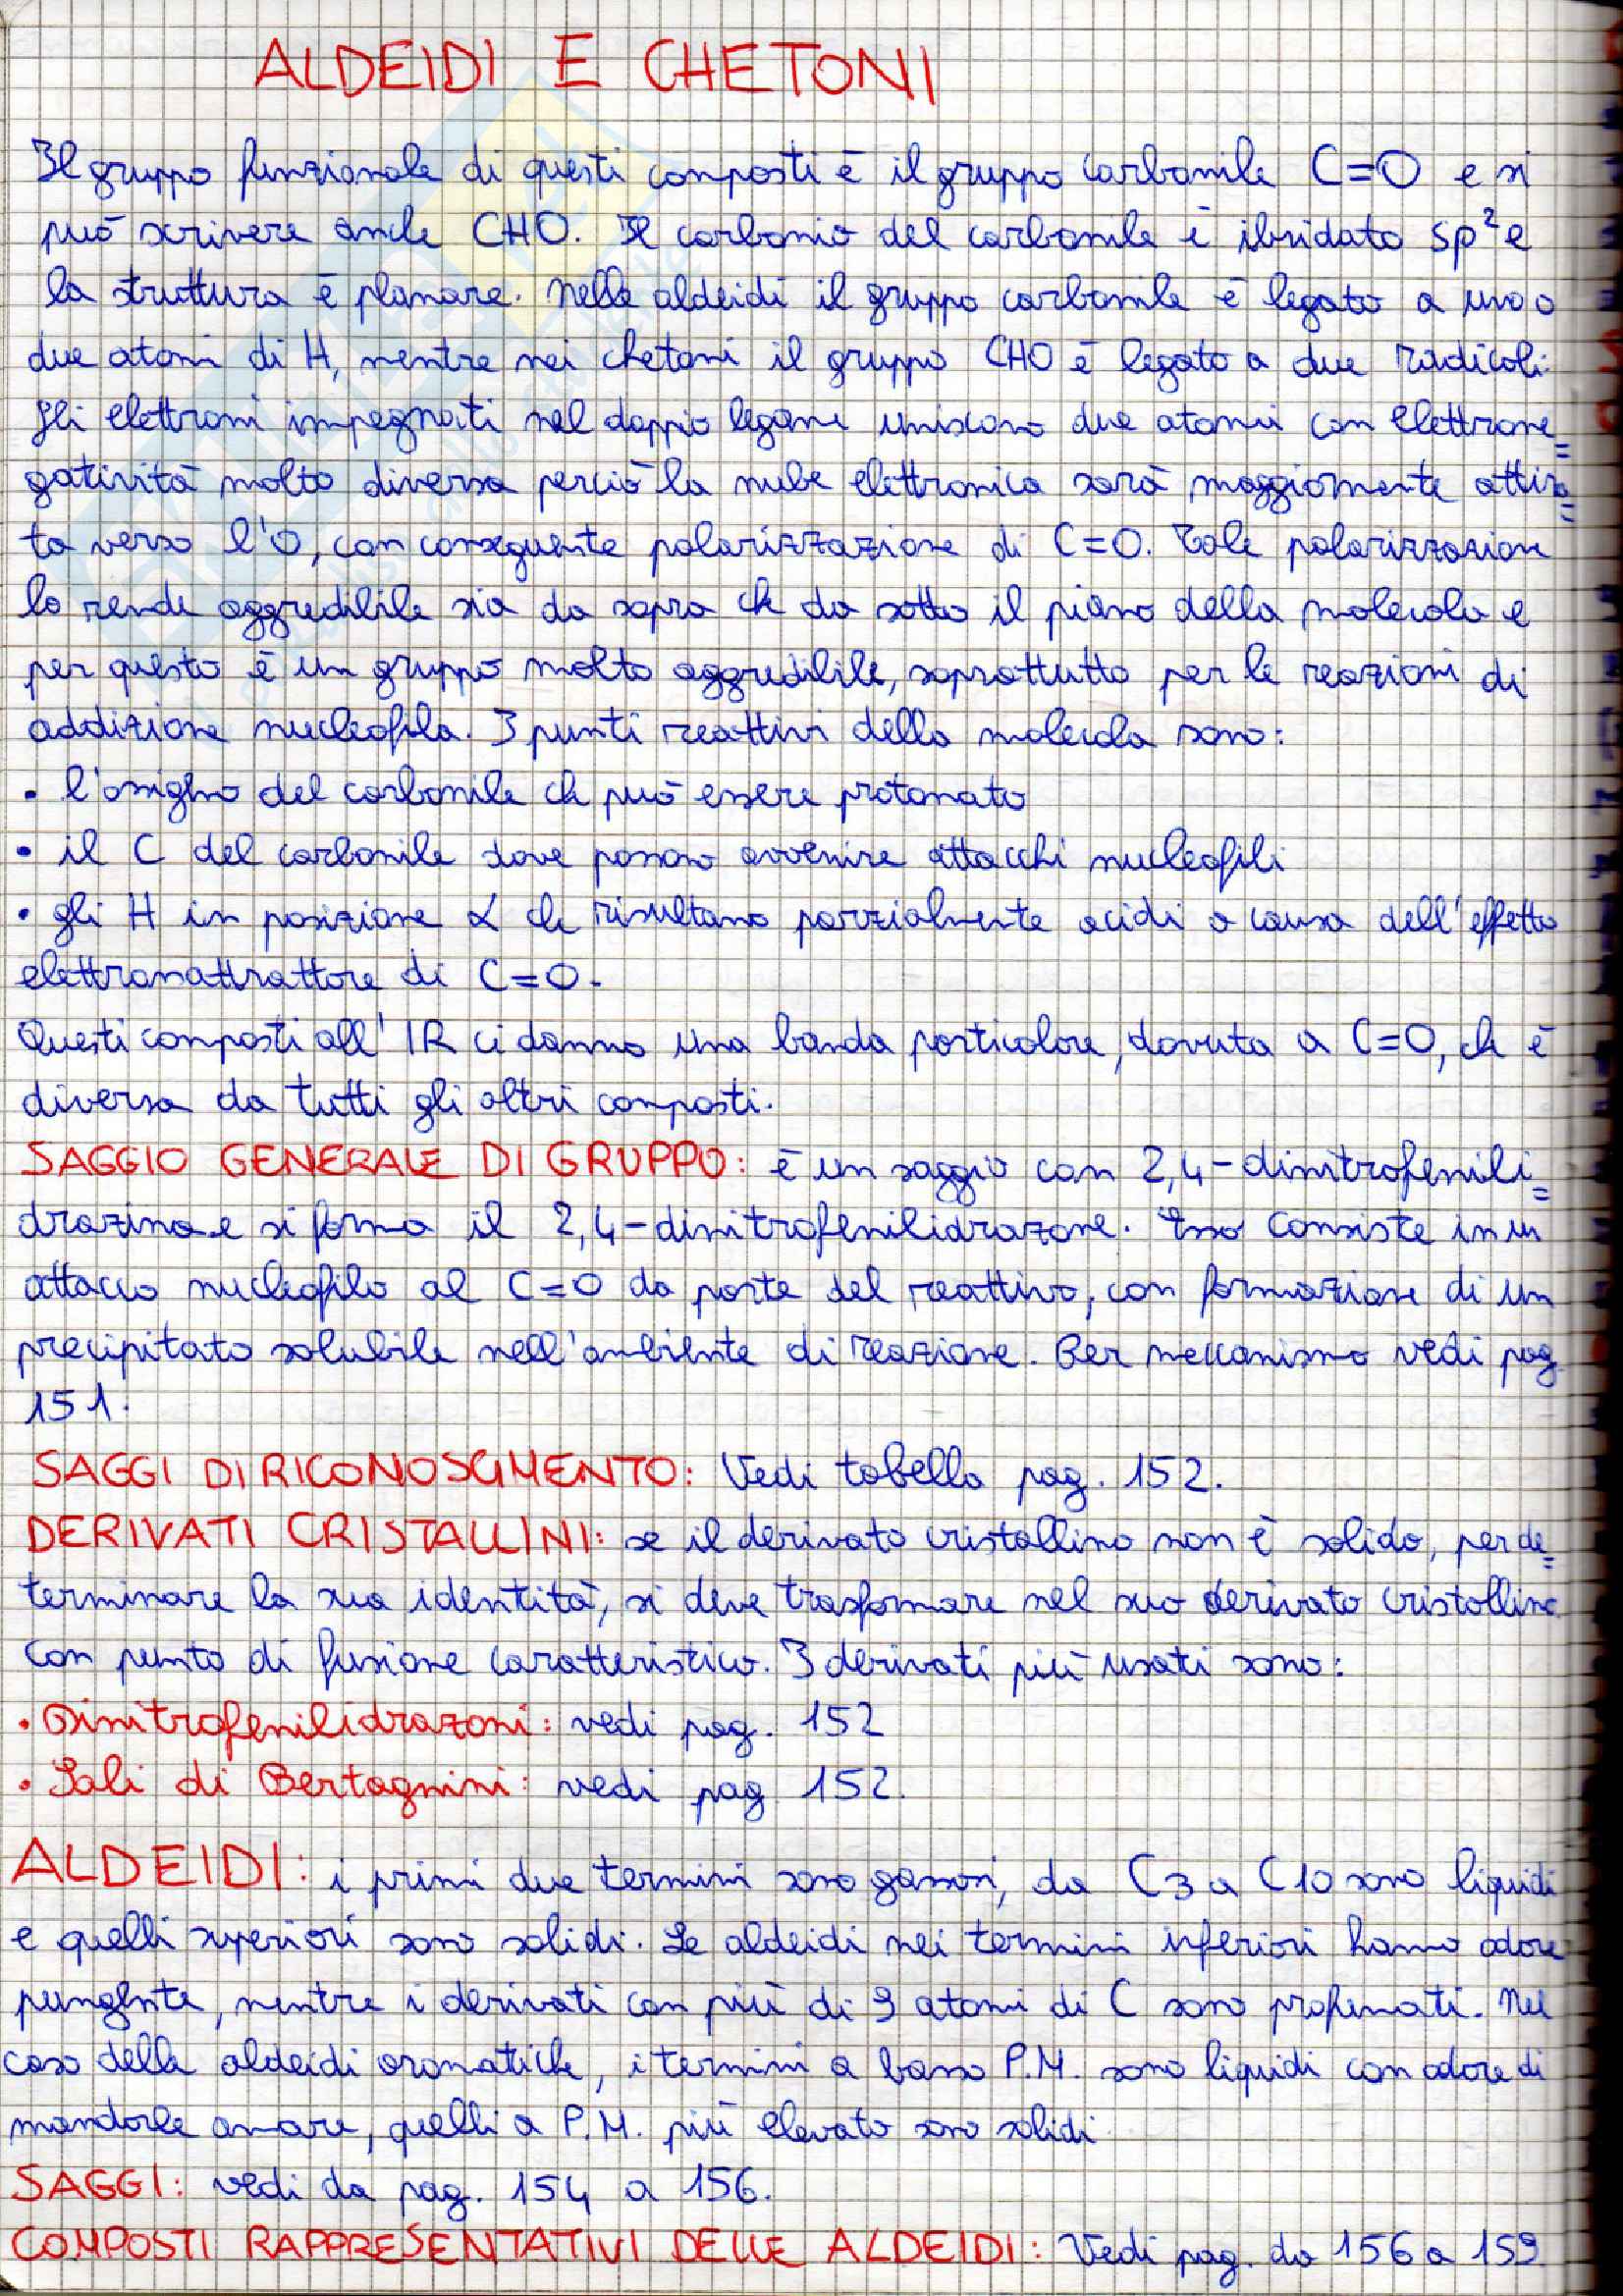 ALDEIDI E CHETONI
Il gruppo funzionale di questi composti è il gruppo carbonile C=O e si
può scrivere anche CHO. Il carbonio del carbonile è ibridato sp²e
la struttura è planare. Nelle aldeidi il gruppo carbonile è legato a uno o
due atomi di H, mentre nei chetoni il gruppo CHO è legato a due radicali.
Gli elettroni impegnati nel doppio legame uniscono due atomi con elettrone=
gatività molto diversa perciò la nube elettronica sarà maggiormente attira=
ta verso l'O, con conseguente polarizzazione di C=O. Tale polarizzazione
lo rende aggredibile sia da sopra che da sotto il piano della molecola e
per questo è un gruppo molto aggredibile, soprattutto per le reazioni di
addizione nucleofila. I punti reattivi della molecola sono:
• l'ossigeno del carbonile che può essere protonato
• il C del carbonile dove possono avvenire attacchi nucleofili
• gli H in posizione α che risultano parzialmente acidi a causa dell'effetto
elettronattrattore di C=O.
Questi composti all'IR ci danno una banda particolare, dovuta a C=O, che è
diversa da tutti gli altri composti.
SAGGIO GENERALE DI GRUPPO: è un saggio con 2,4-dinitrofenili=
drazina e si forma il 2,4-dinitrofenilidrazone. Esso consiste in un
attacco nucleofilo al C=O da parte del reattivo, con formazione di un
precipitato solubile nell'ambiente di reazione. Per meccanismo vedi pag.
151.
SAGGI DI RICONOSCIMENTO: Vedi tabella pag. 152.
DERIVATI CRISTALLINI: se il derivato cristallino non è solido, per de=
terminare la sua identità, si deve trasformare nel suo derivato cristallino
con punto di fusione caratteristico. I derivati più usati sono:
• Dinitrofenilidrazoni: vedi pag. 152
• Sali di Bertagnini: vedi pag 152.
ALDEIDI: i primi due termini sono gassosi, da C3 a C10 sono liquidi
e quelli superiori sono solidi. Le aldeidi nei termini inferiori hanno odore
pungente, mentre i derivati con più di 9 atomi di C sono profumati. Nel
caso delle aldeidi aromatiche, i termini a basso P.M. sono liquidi con odore di
mandorle amare, quelli a P.M. più elevato sono solidi.
SAGGI: vedi da pag. 154 a 156.
COMPOSTI RAPPRESENTATIVI DELLE ALDEIDI: Vedi pag. da 156 a 159